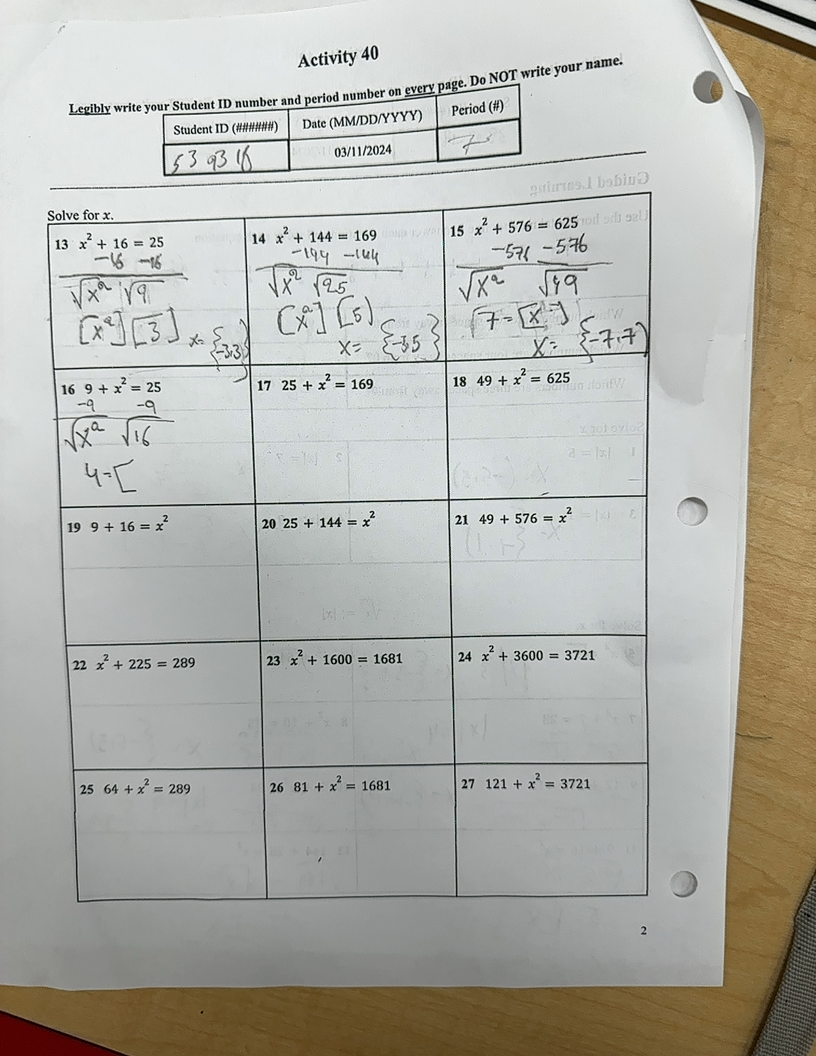 Activity 40
Legibly write your Student ID number and period number on every page. Do NOT write your name.
Student ID (######) Date (MM/DD/YYYY) Period (#)
03/11/2024 7
Solve for x.
13 x² + 16 = 25
-16 -16
√x² √9
[x²] [3] x= {-3,3}
14 x² + 144 = 169
-144 -144
√x² √25
[x²] [5]
x= {-5,5}
15 x² + 576 = 625
-576 -576
√x² √49
x= {-7,7}
16 9 + x² = 25
-9 -9
√x² √16
4=[
17 25 + x² = 169
18 49 + x² = 625
19 9 + 16 = x²
20 25 + 144 = x²
21 49 + 576 = x²
22 x² + 225 = 289
23 x² + 1600 = 1681
24 x² + 3600 = 3721
25 64 + x² = 289
26 81 + x² = 1681
27 121 + x² = 3721
2